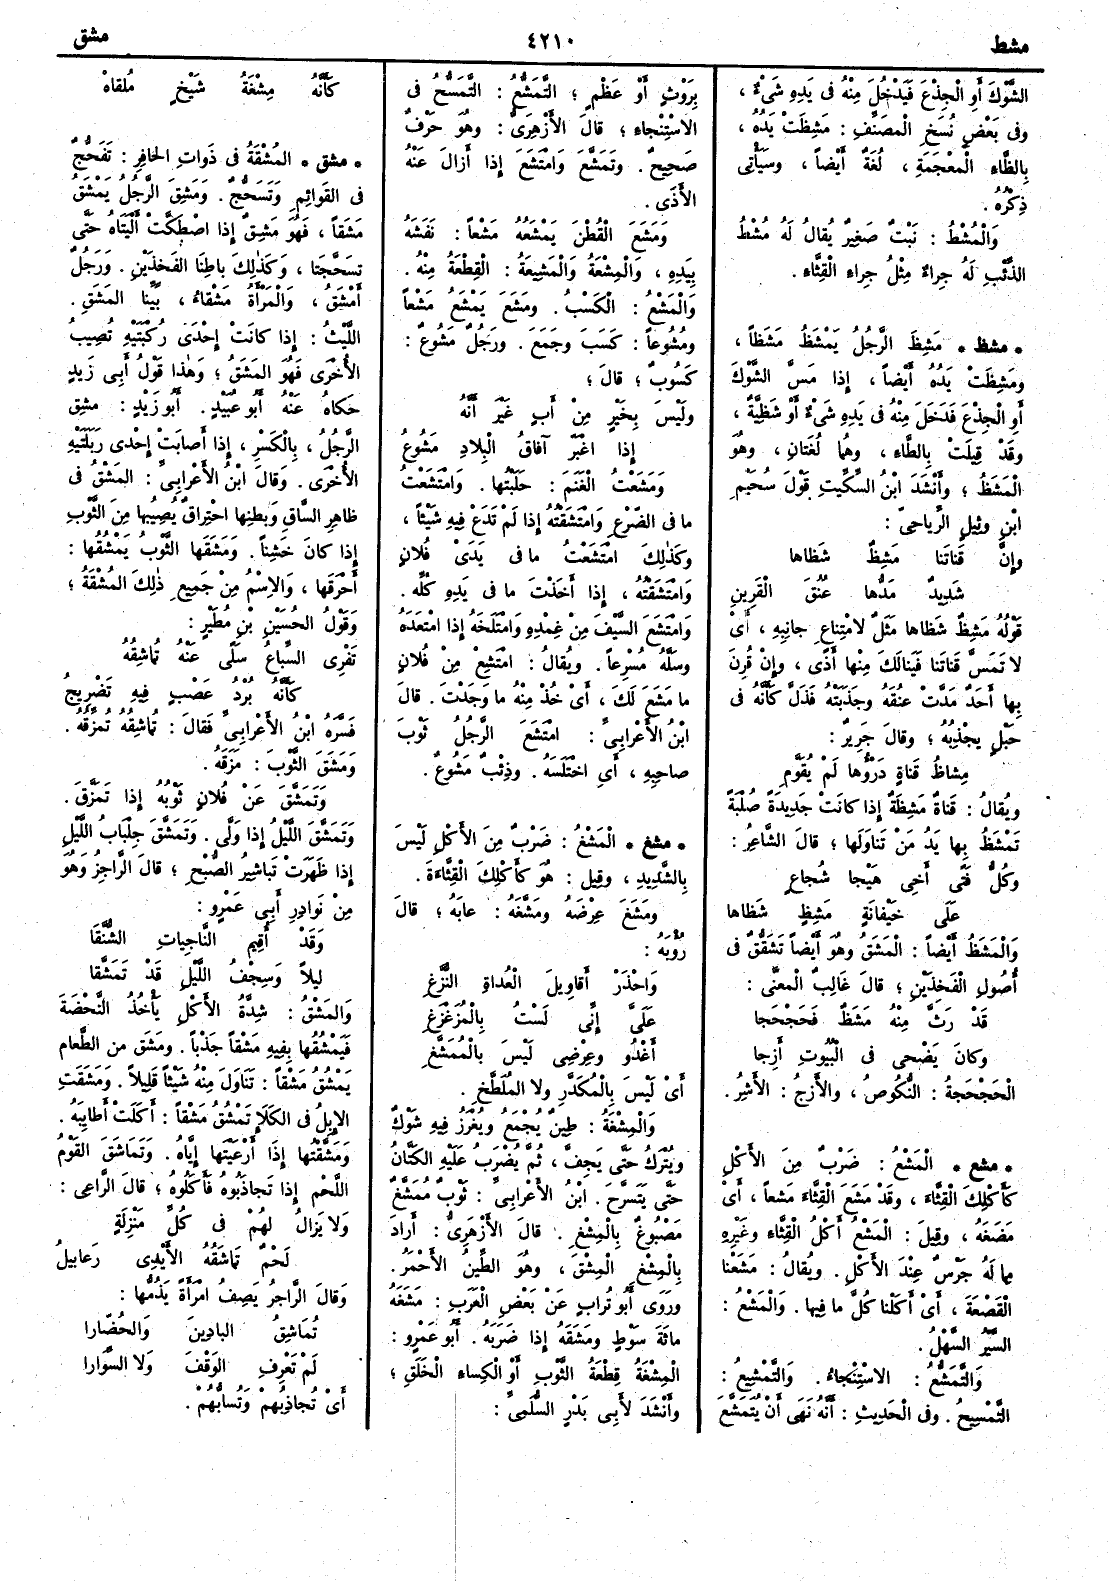 مشط
٤٢١٠
مشق
الشَّوْكَ أَوِ الْجِذْعَ فَيَدْخُلَ مِنْهُ فى يَدِهِ شَىْءٌ ،
وفى بَعْضِ نُسَخِ الْمصَنَّفِ : مَشِظَتْ يَدُهُ ،
بِالظَّاءِ الْمعْجَمَةِ ، لُغَةٌ أَيْضاً ، وسَيَأْتِى
ذِكْرُهُ .
وَالْمُشْطُ : نَبْتٌ صَغِيرٌ يُقالُ لَهُ مُشْطُ
الذِّئْبِ لَهُ جِراءٌ مِثْلُ جِراءِ الْقِثَّاءِ .
• مشظ • مَشِظَ الرَّجُلُ يَمْشَظُ مَشَظاً ،
ومَشِظَتْ يَدُهُ أَيْضاً ، إذا مَسَّ الشَّوْكَ
أَوِ الْجِذْعَ فَدَخَلَ مِنْهُ فى يَدِهِ شَىْءٌ أَوْ شَظِيَّةٌ ،
وقَدْ قِيلَتْ بِالطَّاءِ ، وهُما لُغَتانِ ، وهُوَ
الْمَشَظُ ؛ وأَنْشَدَ ابْنُ السِّكِّيتِ قَوْلَ سُحَيْمِ
ابْنِ وثِيلٍ الرِّياحىِّ :
وإنَّ قَناتَنا مَشِظٌ شَظاها
شَدِيدٌ مَدُّها عُنُقَ الْقَرِينِ
قَوْلُهُ مَشِظٌ شَظاها مَثَلٌ لامْتِناعِ جانِبِهِ ، أَىْ
لا تَمَسَّ قَناتَنا فَيَنالَكَ مِنْها أَذًى ، وإنْ قُرِنَ
بِها أَحَدٌ مَدَّتْ عُنُقَهُ وجَذَبَتْهُ فَذَلَّ كَأَنَّهُ فى
حَبْلٍ يجْذِبُهُ ؛ وقالَ جَرِيرٌ :
مِشاظُ قَناةٍ دَرْؤُها لَمْ يُقَوَّمِ
ويُقالُ : قَناةٌ مَشِظَةٌ إذا كانَتْ جَدِيدَةً صُلْبَةً
تَمْشَظُ بِها يَدُ مَنْ تَناوَلَها ؛ قالَ الشَّاعِرُ :
وكُلُّ فَتًى أَخِى هَيْجا شُجاعٍ
عَلَى خَيْفانَةٍ مَشِظٍ شَظاها
وَالْمَشَظُ أَيْضاً : الْمَشَقُ وهُوَ أَيْضاً تَشَقُّقٌ فى
أُصُولِ الْفَخِذَيْنِ ؛ قالَ غالِبٌ الْمعْنِىُّ :
قَدْ رَثَّ مِنْهُ مَشَظٌ فَحَجْحَجا
وكانَ يَضْحى فى الْبُيُوتِ أَزِجا
الْحَجْحَجَةُ : النُّكُوصُ ، والأَزِجُ : الأَشِرُ .
• مشع • الْمَشْعُ : ضَرْبٌ مِنَ الأَكْلِ
كَأَكْلِكَ الْقِثَّاءَ ، وقَدْ مَشَعَ الْقِثَّاءَ مَشْعاً ، أَىْ
مَضَغَهُ ، وقِيلَ : الْمَشْعُ أَكْلُ الْقِثَّاءِ وغَيْرِهِ
مِما لَهُ جَرْسٌ عِنْدَ الأَكْلِ . ويُقالُ : مَشَعْنا
الْقَصْعَةَ ، أَىْ أَكَلْنا كُلَّ ما فِيها . وَالْمَشْعُ :
السَّيْرُ السَّهْلُ .
وَالتَّمَشُّعُ : الاسْتِنْجاءُ . وَالتَّمْشِيعُ :
التَّمْسِيحُ . وفى الْحَدِيثِ : أَنَّهُ نَهَى أَنْ يُتَمَشَّعَ
بِرَوْثٍ أَوْ عَظْمٍ ؛ التَّمَشُّعُ : التَّمَسُّحُ فى
الاسْتِنْجاءِ ؛ قالَ الأَزْهَرِىُّ : وهُوَ حَرْفٌ
صَحِيحٌ . وتَمَشَّعَ وَامْتَشَعَ إذا أَزالَ عَنْهُ
الأَذَى .
ومَشَعَ الْقُطْنَ يَمْشَعُهُ مَشْعاً : نَفَشَهُ
بِيَدِهِ ، وَالْمِشْعَةُ وَالْمَشِيعَةُ : الْقِطْعَةُ مِنْهُ .
وَالْمَشْعُ : الْكَسْبُ . ومَشَعَ يَمْشَعُ مَشْعاً
ومُشُوعاً : كَسَبَ وجَمَعَ . ورَجُلٌ مَشُوعٌ :
كَسُوبٌ ؛ قالَ ؛
ولَيْسَ بِخَيْرٍ مِنْ أَبٍ غَيْرَ أَنَّهُ
إذا اغْبَرَّ آفاقُ الْبِلادِ مَشُوعُ
ومَشَعْتُ الْغَنَمَ : حَلَبْتُها . وَامْتَشَعْتُ
ما فى الضَّرْعِ وَامْتَشَقْتُهُ إذا لَمْ تَدَعْ فِيهِ شَيْئاً ،
وكَذلِكَ امْتَشَعْتُ ما فى يَدَىْ فُلانٍ
وَامْتَشَقْتُهُ ، إذا أَخَذْتَ ما فى يَدِهِ كُلَّهُ .
وَامْتَشَعَ السَّيْفَ مِنْ غِمْدِهِ وَامْتَلَخَهُ إذا امْتَعَدَهُ
وسَلَّهُ مُسْرِعاً . ويُقالُ : امْتَشِعْ مِنْ فُلانٍ
ما مَشَعَ لَكَ ، أَىْ خُذْ مِنْهُ ما وجَدْتَ . قالَ
ابْنُ الأَعْرابِىِّ : امْتَشَعَ الرَّجُلُ ثَوْبَ
صاحِبِهِ ، أَىِ اخْتَلَسَهُ . وذِئْبٌ مَشُوعٌ .
• مشغ • الْمَشْغُ : ضَرْبٌ مِنَ الأَكْلِ لَيْسَ
بِالشَّدِيدِ ، وقِيلَ : هُوَ كَأَكْلِكَ الْقِثَّاءَةَ .
ومَشَغَ عِرْضَهُ ومَشَّغَهُ : عابَهُ ؛ قالَ
رُؤْبَةُ :
وَاحْذَرْ أَقاوِيلَ الْعُداةِ النُّزَّغِ
عَلَىَّ إنِّى لَسْتُ بِالْمُزَغْزَغِ
أَغْدُو وعِرْضِى لَيْسَ بِالْمُمَشَّغِ
أَىْ لَيْسَ بِالْمُكَدَّرِ ولا الْمُلَطَّخِ .
وَالْمِشْغَةُ : طِينٌ يُجْمَعُ ويُغْرَزُ فِيهِ شَوْكٌ
ويُتْرَكُ حَتَّى يَجِفَّ ، ثُمَّ يُضْرَبُ عَلَيْهِ الْكَتَّانُ
حَتَّى يَتَسَرَّحَ . ابْنُ الأَعْرابِىِّ : ثَوْبٌ مُمَشَّغٌ
مَصْبُوغٌ بِالْمِشْغِ . قالَ الأَزْهَرِىُّ : أَرادَ
بِالْمِشْغِ الْمِشْقَ ، وهُوَ الطِّينُ الأَحْمَرُ .
ورَوَى أَبُو تُرابٍ عَنْ بَعْضِ الْعَرَبِ : مَشَغَهُ
مائَةَ سَوْطٍ ومَشَقَهُ إذا ضَرَبَهُ . أَبُو عَمْرٍو :
الْمِشْغَةُ قِطْعَةُ الثَّوْبِ أَوْ الْكِساءِ الْخَلَقِ ؛
وأَنْشَدَ لأَبِى بَدْرٍ السُّلَمِىِّ :
كَأَنَّهُ مِشْغَةُ شَيْخٍ مُلْقاهْ
• مشق • المُشْقَةُ فى ذَواتِ الحافِرِ : تَفَحُّجٌ
فى القَوائِمِ وَتَسَحُّجٌ . وَمَشِقَ الرَّجُلُ يَمْشَقُ
مَشَقاً ، فَهُوَ مَشِقٌ إذا اصْطَكَّتْ أَلْيَتاهُ حَتَّى
تَسَحَّجَتا ، وَكَذٰلِكَ باطِنَا الفَخذَيْنِ . وَرَجُلٌ
أَمْشَقُ ، وَالْمَرْأَةُ مَشْقاءُ ، بَيِّنا المَشَقِ .
اللَّيْثُ : إذا كانَتْ إحْدَى رُكْبَتَيْهِ تُصِيبُ
الأُخْرَى فَهُوَ المَشَقُ ؛ وَهٰذا قَوْلُ أَبِى زَيدٍ
حَكاهُ عَنْهُ أَبُو عُبَيْدٍ . أَبُو زَيْدٍ : مَشِقَ
الرَّجُلُ ، بِالْكَسْرِ ، إذا أَصابَتْ إحْدى رَبَلَتَيْهِ
الأُخْرَى . وَقالَ ابْنُ الأَعْرابِىِّ : المَشْقُ فى
ظاهِرِ السَّاقِ وَبَطْنِها احْتِراقٌ يُصِيبُها مِنَ الثَّوْبِ
إذا كانَ خَشِناً . وَمَشَقَها الثَّوْبُ يَمْشُقُها :
أَحْرَقَها ، وَالاِسْمُ مِنْ جَمِيعِ ذٰلِكَ المُشْقَةُ ؛
وَقَوْلُ الحُسَيْنِ بْنِ مُطَيْرٍ :
تَفْرِى السِّباعُ سَلًى عَنْهُ تُماشِقُهُ
كَأَنَّهُ بُرْدُ عَصْبٍ فِيهِ تَضْرِيجُ
فَسَّرَهُ ابْنُ الأَعْرابِىِّ فَقالَ : تُماشِقُهُ تُمَزِّقُهُ .
وَمَشَقَ الثَّوْبَ : مَزَقَهُ .
وَتَمَشَّقَ عَنْ فُلانٍ ثَوْبُهُ إذا تَمَزَّقَ .
وَتَمَشَّقَ اللَّيْلُ إذا وَلَّى . وَتَمَشَّقَ جِلْبابُ اللَّيْلِ
إذا ظَهَرَتْ تَباشِيرُ الصُّبْحِ ؛ قالَ الرَّاجِزُ وَهُوَ
مِنْ نَوادِرِ أَبِى عَمْرٍو :
وَقَدْ أُقِيمُ النَّاجِياتِ الشُّنَّقَا
ليلاً وَسِجْفُ اللَّيْلِ قَدْ تَمَشَّقا
وَالمَشْقُ : شِدَّةُ الأَكْلِ يَأْخُذُ النَّحْضَةَ
فَيَمْشُقُها بِفِيهِ مَشْقاً جَذْباً . ومَشَقَ من الطَّعام
يَمْشُقُ مَشْقاً : تَناوَلَ مِنْهُ شَيْئاً قَلِيلاً . وَمَشَقَتِ
الإبِلُ فى الكَلَإِ تَمْشُقُ مَشْقاً : أَكَلَتْ أَطايِبَهُ .
وَمَشَّقْتُها إذا أَرْعَيْتَها إيَّاهُ . وَتَماشَقَ القَوْمُ
اللَّحْمِ إذا تَجاذَبُوهُ فَأَكَلُوهُ ؛ قالَ الرَّاعِى :
وَلا يَزالُ لَهُمْ فى كُلِّ مَنْزِلَةٍ
لَحْمٌ تَماشَقُهُ الأَيْدِى رَعابِيلُ
وَقالَ الرَّاجِزُ يَصِفُ امْرَأَةً يَذُمُّها :
تُماشِقُ البادِينَ وَالحُضَّارا
لَمْ تَعْرِفِ الوَقْفَ وَلا السِّوارا
أَىْ تُجاذِبُهُمْ وَتُسابُّهُمْ .